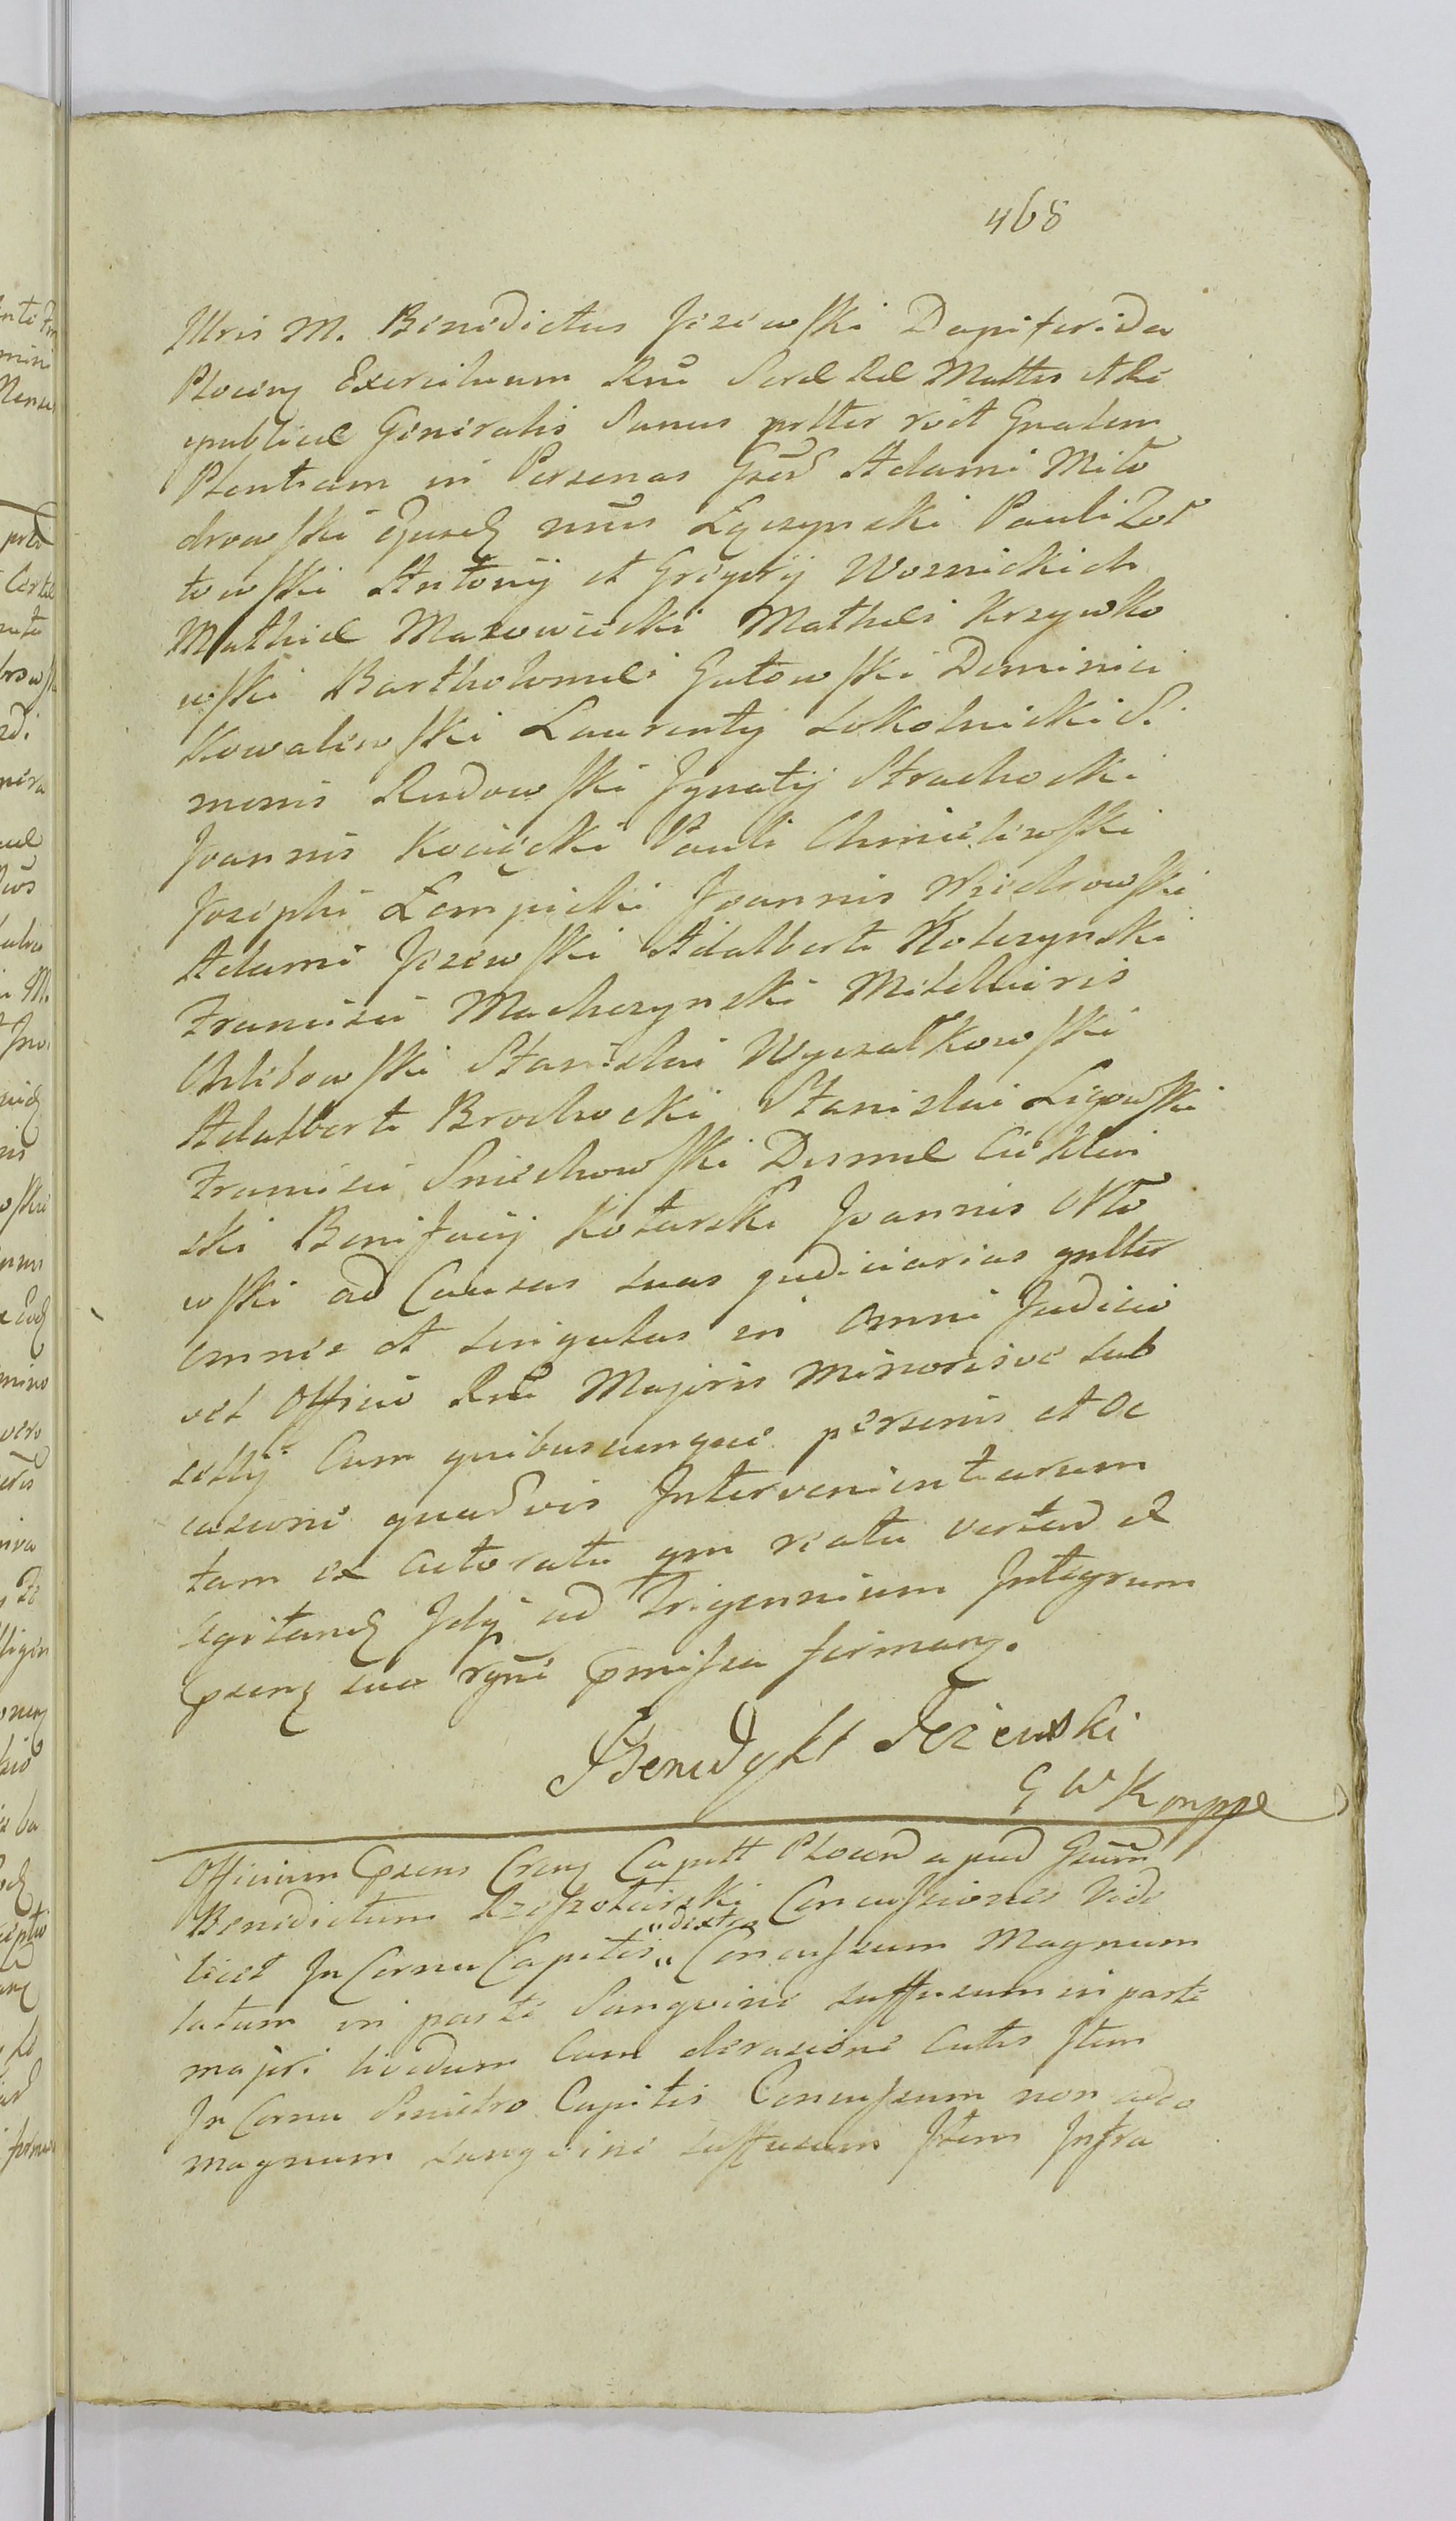 468
Illris M. Benedictus Jezewski Dapiferida
Plocen Exercituum Rni Sacræ Ræ Mattis et Re
publicæ Generalis Sanus pltter röit Gnalem
Plentiam in Personas Gsöd Adami Milo
drowski Ejusd nnis Łączynski Pauli Zol
towski Antonij et Gregorij Woznickich
Mathiæ Mazowiecki Mathæi Krzywko
wski Bartholomæi Gutowski Dominici
Kowalewski Laurentij Sokolnicki Si
monis Rudowski Ignatij Strachocki
Joannis Kocięcki Pauli Chmielewski
Josephi Łempicki Joannis Niedrowski
Adami Jezewski Adalberti Kolczynski
Francisci Machczynski Melchioris
Chlibowski Stanislai Wyczalkowski
Adalberti Brochocki Stanislai Ligowski
Francisci Sniechowski Dismæ Cieklin
ski Bonifacij Kotarski Joannis Oltó
wski ad Causas suas judiciarias gnltter
omnes et singulas in omni Judicio
vel Officio Rni Majoris Minorisve sub
sellij Cum quibuscunque personis et oc
casione quavis Intervenientiarum
tam ex actoratu qm reatu vertend et
agitand Idq ad Trigennium Integrum
Psenq sua rgnë Pmissa firmanq.
Benedykt Jezewski
G W K
Officium Psens Cren Capitt Plocen apud Gsum
Benedictum Rzeszotarski Concussiones Vide
licet In Cornu Capitis „dextro„ Concussum Magnum
latum in parte Sangvine suffusum in parte
majori lividum Cum derasione Cutis Item
In Cornu Sinistro Capitis Concussum non adeo
magnum sangvine suffusum Item Infra